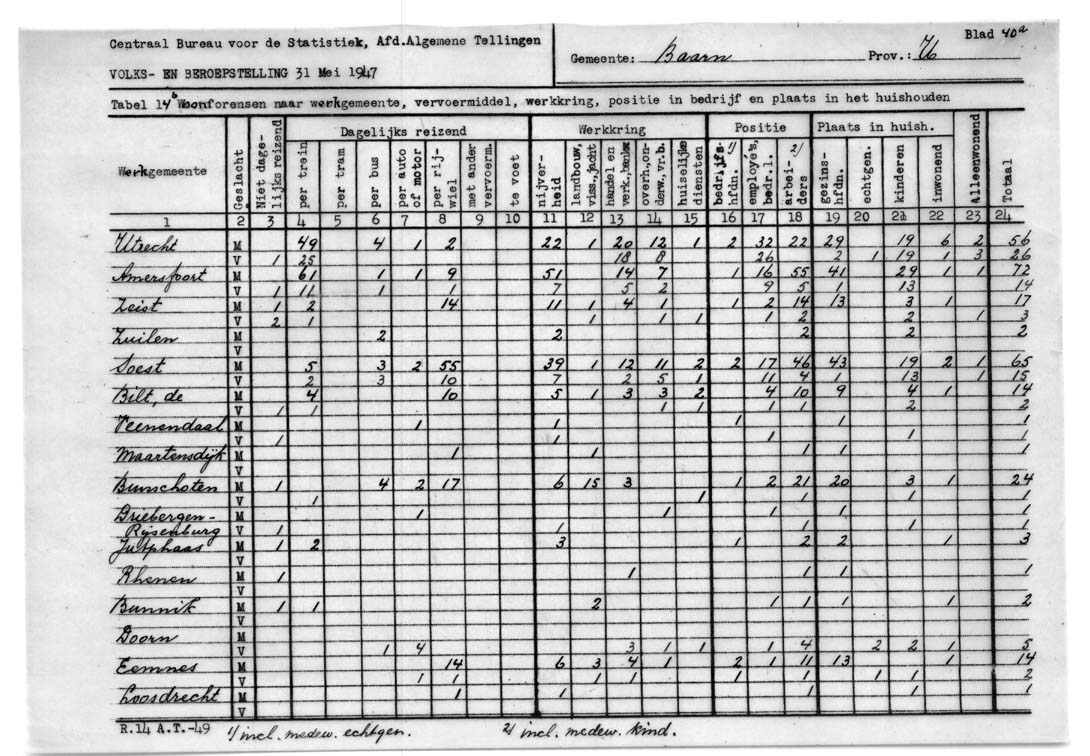 Blad 40a
Centraal Bureau voor de Statistiek, Afd.Algemene Tellingen
Gemeente: Baarn Prov.: U
VOLKS- EN BEROEPSTELLING 31 Mei 1947
Tabel 14b Woonforensen naar werkgemeente, vervoermiddel, werkkring, positie in bedrijf en plaats in het huishouden
Werkgemeente Geslacht Niet dage-lijks reizend Dagelijks reizend Werkkring Positie Plaats in huish. Alleenwonend Totaal
per trein per tram per bus per auto of motor per rij-wiel met ander vervoerm. te voet nijver-heid landbouw, viss.,jacht handel en verk.,bankw overh.,on-derw.,vr.b. huiselijke diensten bedrijfs-hfdn. 1) employe's, bedr.l. arbei-ders 2) gezins-hfdn. echtgen. kinderen inwonend
1 2 3 4 5 6 7 8 9 10 11 12 13 14 15 16 17 18 19 20 21 22 23 24
Utrecht M 49 4 1 2 22 1 20 12 1 2 32 22 29 19 6 2 56
V 1 25 18 8 26 2 1 19 1 3 26
Amersfoort M 61 1 1 9 51 14 7 1 16 55 41 29 1 1 72
V 1 11 1 1 7 5 2 9 5 1 13 14
Zeist M 1 2 14 11 1 4 1 1 2 14 13 3 1 17
V 2 1 1 1 1 1 2 2 1 3
Zuilen M 2 2 2 2 2
V
Soest M 5 3 2 55 39 1 12 11 2 2 17 46 43 19 2 1 65
V 2 3 10 7 2 5 1 11 4 1 13 1 15
Bilt, de M 4 10 5 1 3 3 2 4 10 9 4 1 14
V 1 1 1 1 1 1 2 2
Veenendaal M 1 1 1 1 1
V 1 1 1 1 1
Maartensdijk M 1 1 1 1 1
V
Bunschoten M 1 4 2 17 6 15 3 1 2 21 20 3 1 24
V 1 1 1 1 1
Driebergen- M 1 1 1 1 1
Rijsenburg V 1 1 1 1 1
Jutphaas M 1 2 3 1 2 2 1 3
V
Rhenen M 1 1 1 1 1
V
Bunnik M 1 1 2 1 1 1 1 2
V
Doorn M
V 1 4 3 1 1 1 4 2 2 1 5
Eemnes M 14 6 3 4 1 2 1 11 13 1 14
V 1 1 1 1 1 1 1 1 2
Loosdrecht M 1 1 1 1 1
V
R.14 A.T.-49 1/ incl. medew. echtgen. 2/ incl. medew. kind.